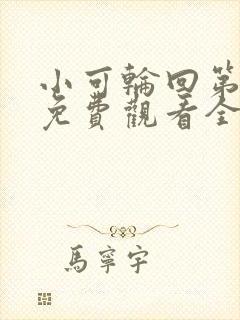 小可輪回第
免費觀看全
馬寧宇